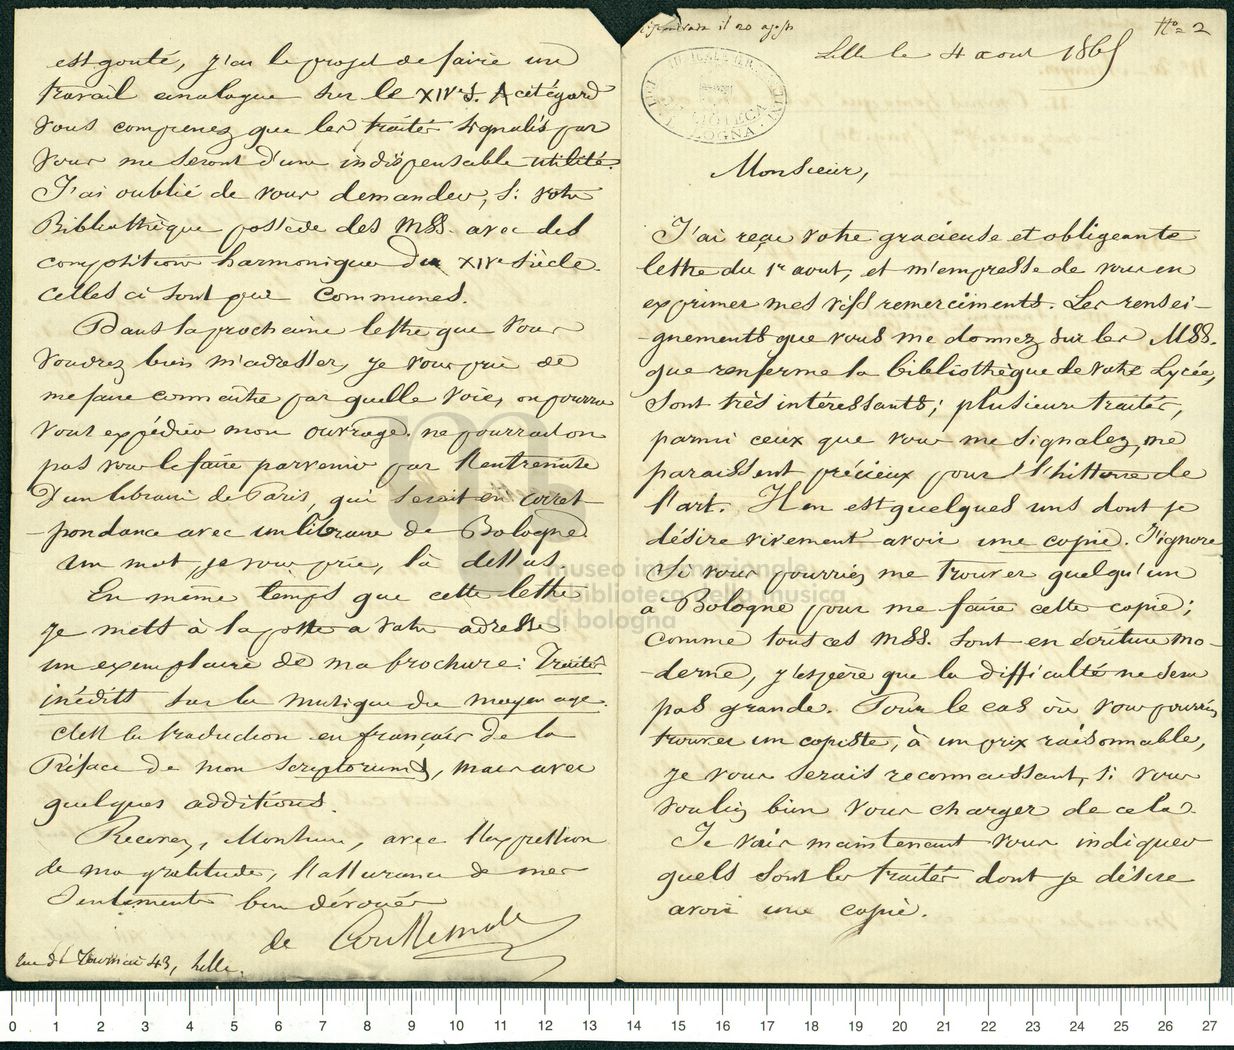 risposto il 20 agosto
N.º 2
Lille le 4 aout 1865
LICEO MUSICALE
BIBLIOTECA
BOLOGNA
Monsieur,
J'ai reçu votre gracieuse et obligeante
lettre du 1er aout, et m'empresse de vous en
exprimer mes vifs remerciments. Les rensei-
-gnements que vous me donnez sur les MSS.
que renferme la bibliothèque de votre Lycée,
sont très intéressants; plusieurs traités,
parmi ceux que vous me signalez, me
paraissent précieux pour l'histoire de
l'art. Il en est quelques uns dont je
désire vivement avoir une copie. J'ignore
si vous pourriez me trouver quelqu'un
a Bologne pour me faire cette copie;
comme tous ces MSS. sont en écriture mo-
-derne, j'espère que la difficulté ne sera
pas grande. Pour le cas où vous pourriez
trouver un copiste, à un prix raisonnable,
je vous serais reconnaissant, si vous
vouliez bien vous charger de cela.
Je vais maintenant vous indiquer
quels sont les traités dont je désire
avoir une copie.
est gouté, j'ai le projet de faire un
travail analogue sur le XIVe S. A cet égard
vous comprenez que les traités signalés par
vous me seront d'une indispensable utilité.
J'ai oublié de vous demander, si votre
Bibliothèque possède des MSS. avec des
compositions harmoniques du XIVe siècle.
Celles ci sont peu communes.
Dans la prochaine lettre que vous
voudrez bien m'adresser, je vous prie de
me faire connaitre par quelle voie, on pourra
vous expédier mon ouvrage. ne pourrait on
pas vous le faire parvenir par l'entremise
d'un libraire de Paris, qui serait en corres-
-pondance avec un libraire de Bologne.
Un mot, je vous prie, là dessus.
En même temps que cette lettre
je mets à la poste a votre adresse
un exemplaire de ma brochure: Traités
inédits sur la musique du moyen age.
C'est la traduction en français de la
Préface de mon Scriptorum, mais avec
quelques additions.
Recevez, Monsieur, avec l'expression
de ma gratitude, l'assurance de mes
sentiments bien dévoués
de Coussemaker
rue de Tournai 43, Lille.
museo internazionale
e biblioteca della musica
di bologna